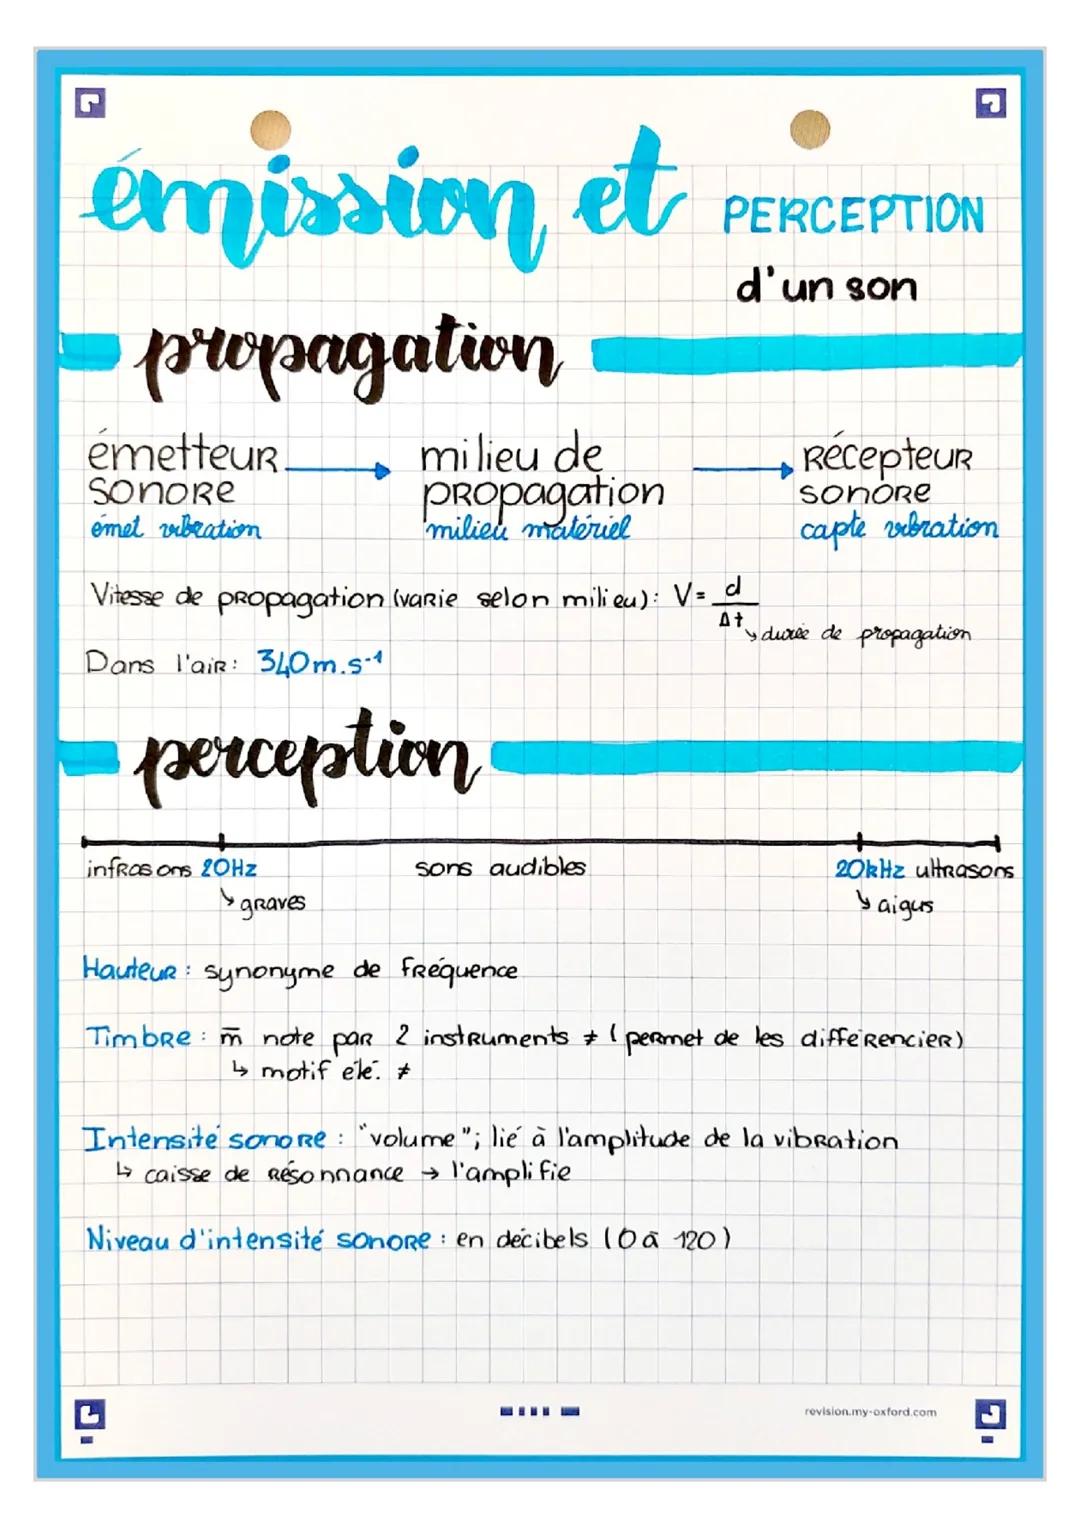 émission et PERCEPTION
d'un son
propagation
émetteur sonore → milieu de propagation → Récepteur sonore
émet vibration milieu matériel capte vibration
Vitesse de propagation (varie selon milieu) : V = d / Δt
↘ durée de propagation
Dans l'air : 340 m.s⁻¹
perception
infrasons 20Hz sons audibles 20kHz ultrasons
↘ graves ↘ aigus
Hauteur : synonyme de fréquence
Timbre : m̅ note par 2 instruments ≠ (permet de les différencier)
↳ motif élé. ≠
Intensité sonore : "volume"; lié à l'amplitude de la vibration
↳ caisse de résonnance → l'amplifie
Niveau d'intensité sonore : en décibels (0 à 120)
revision.my-oxford.com